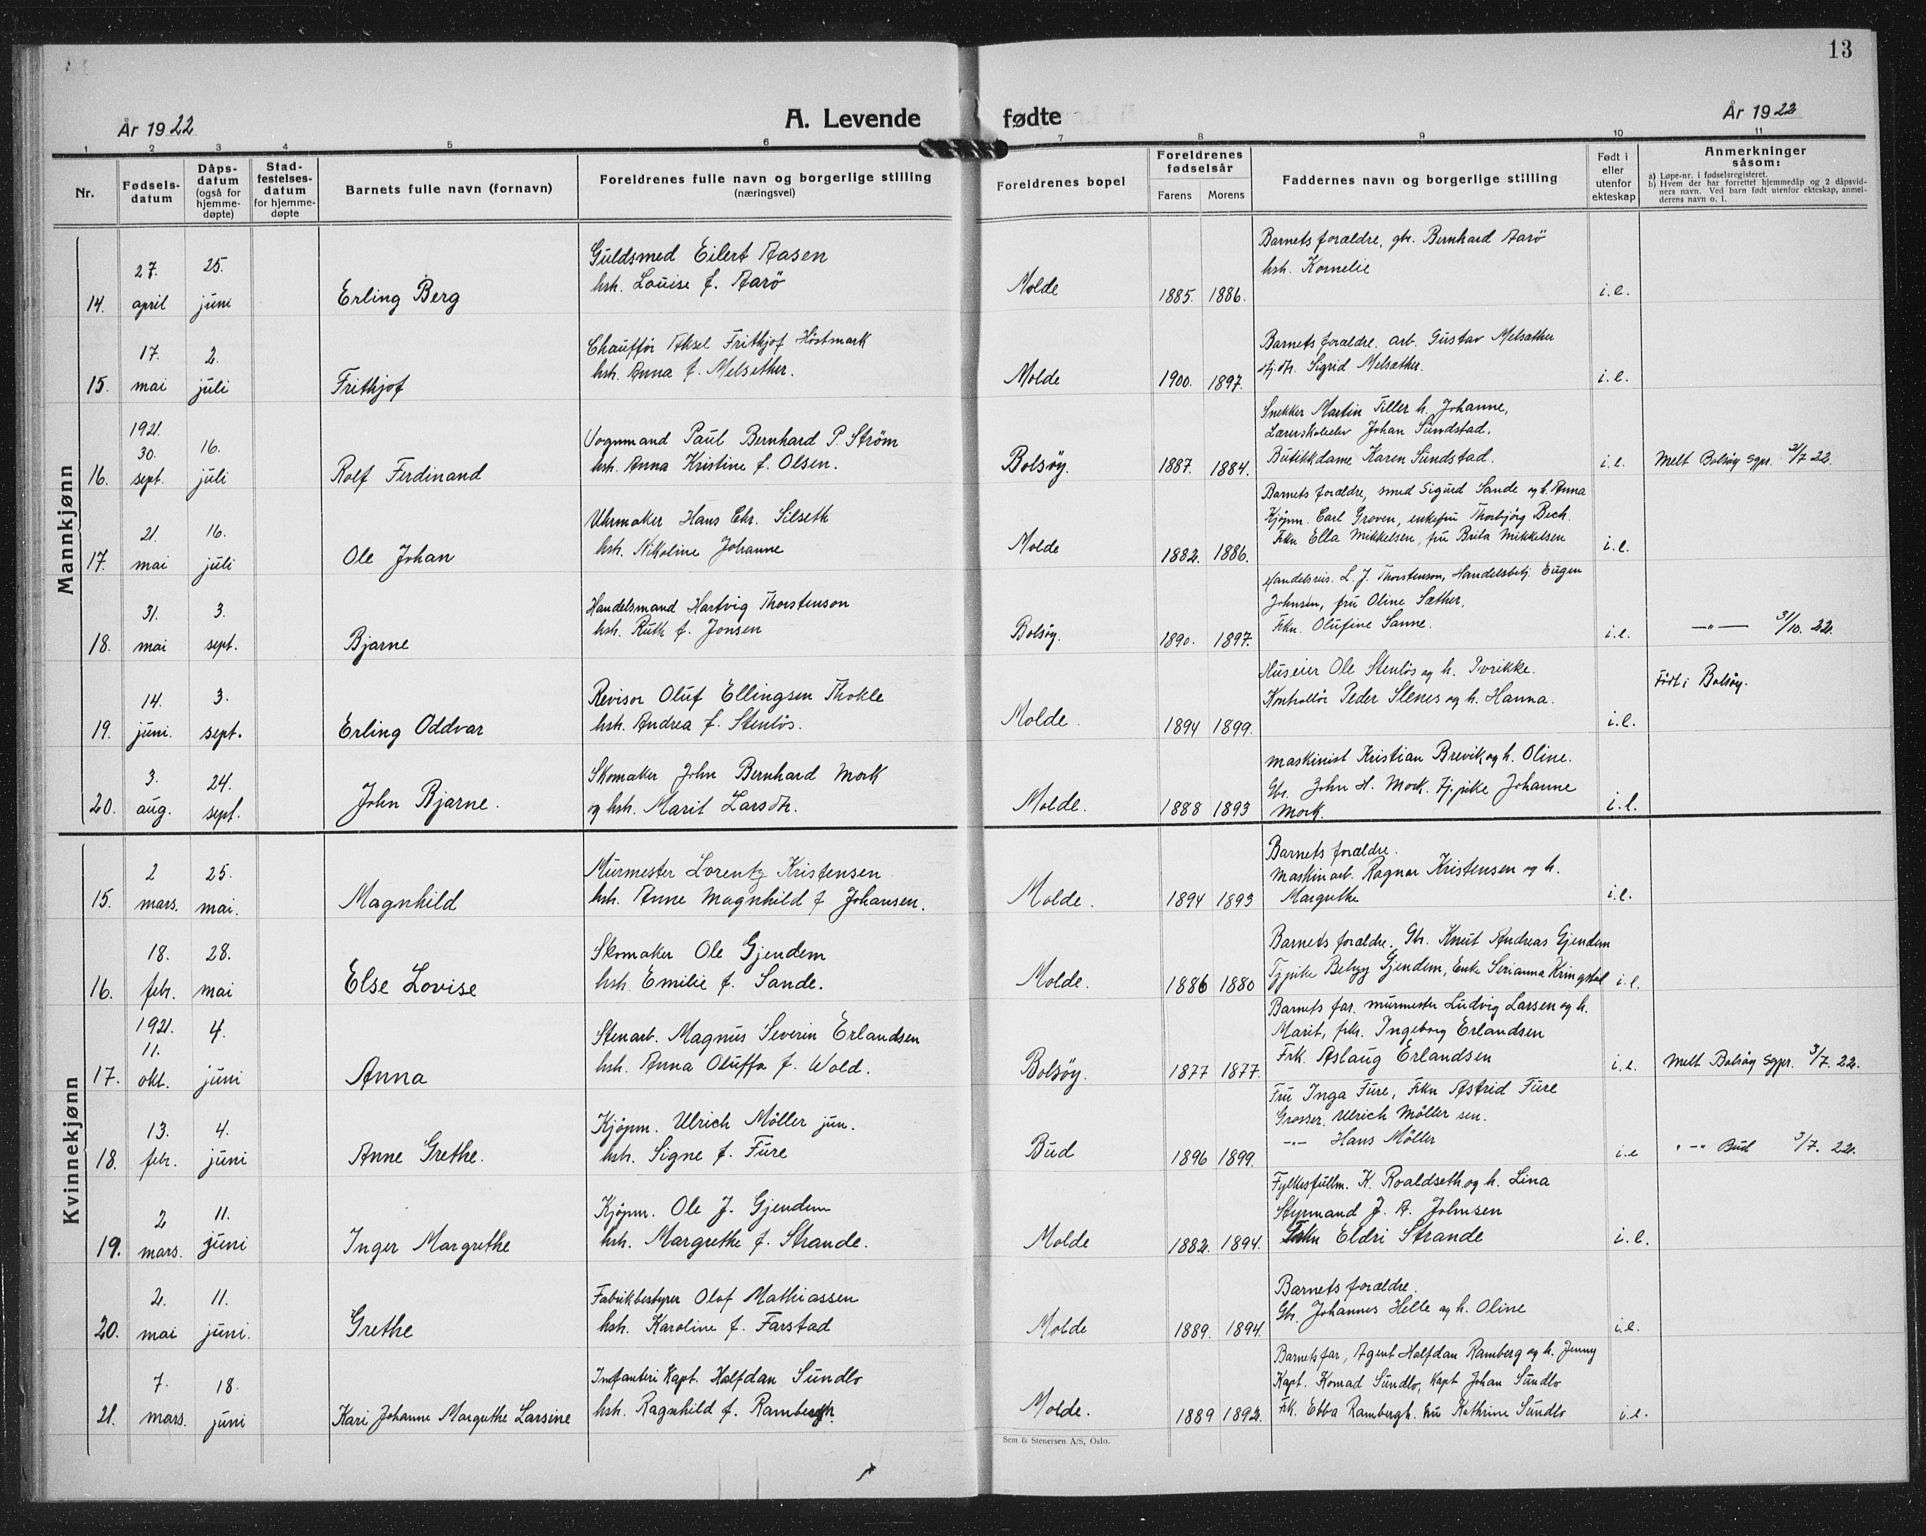 13
År 1922
A. Levende fødte
År 1922
1 2 3 4 5 6 7 8 9 10 11
Nr.
Fødsels-
datum
Dåps-
datum
(også for
hjemme-
døpte)
Stad-
festelses-
datum
for hjemme-
døpte
Barnets fulle navn (fornavn)
Foreldrenes fulle navn og borgerlige stilling
(næringsvei)
Foreldrenes bopel
Foreldrenes
fødselsår
Farens Morens
Faddernes navn og borgerlige stilling
Født i
eller
utenfor
ekteskap
Anmerkninger
såsom:
a) Løpe-nr. i fødselsregisteret.
b) Hvem der har forrettet hjemmedåp og 2 dåpsvid-
ners navn. Ved barn født utenfor ekteskap, anmel-
derens navn o. l.
Mannkjønn
14. 27. april 25. juni Erling Berg
Guldsmed Eilert Aasen
hstr. Louise f. Aarø
Molde 1885. 1886.
Barnets forældre, gbr. Bernhard Aarø
hstr. Kornelie
i.e.
15. 17. mai 2. juli Frithjof
Chauffør Aksel Frithjof Høstmark
hstr. Anna f. Melsether.
Molde 1900. 1897.
Barnets forældre. arb. Gustav Melsæther
Sigrid Melsæther.
i.e.
16. 1921. 30. sept. 16. juli Rolf Ferdinand
Vognmand Paul Bernhard P. Strøm
hstr. Anna Kristine f. Olsen.
Bolsøy. 1887. 1884.
Snekker Martin Tiller h. Johanne,
Lærerskoleelev Johan Sundstad.
Butikkdame Karen Sundstad.
i.e. Melt Bolsøy sgpr. 31/7 22.
17. 21. mai 16. juli Ole Johan
Uhrmaker Hans Chr. Silseth
hstr. Nikoline Johanne
Molde 1882. 1886.
Barnets forældre, smed Sigurd Sande og h. Anna
Kjøpm. Carl Groven, enkefru Thorbjørg Bech.
Frkn Ella Mikkelsen, fru Brita Mikkelsen
i.e.
18. 31. mai 3. sept. Bjarne
Handelsmand Hartvig Thorstenson
hstr. Ruth f. Jonsen
Bolsøy. 1890. 1897.
Handelsreis. L. J. Thorstenson, Handelsbetj. Eugen
Johnsen, fru Oline Sæther.
Frkn. Olufine Sanne.
i.e. —"— 31/10. 22.
19. 14. juni. 3. sept. Erling Oddvar
Revisor Oluf Ellingsen Thokle
hstr. Andrea f. Stenløs.
Molde. 1894 1899.
Huseier Ole Stenløs og h.
Kontrollør Peder Slenes og h. Hanna.
i.e. Født i Bolsøy.
20. 3. aug. 24. sept. John Bjarne.
Skomaker John Bernhard Mork
og hstr. Marit Larsdtr.
Molde. 1888 1893
Maskinist Kristian Brevik og h. Oline.
Gbr. John H. Mork. Tj.pike Johanne
Mork.
i.e.
Kvinnekjønn
15. 2 mars. 25. mai. Magnhild
Murmester Lorentz Kristensen
hstr. Anne Magnhild f Johansen.
Molde. 1894 1893
Barnets forældre.
Maskinarb. Ragnar Kristensen og h.
Margrethe
i.e.
16. 18. febr. 28. mai Else Lovise
Skomaker Ole Gjendem
hstr. Emilie f. Sande.
Molde. 1886 1880
Barnets forældre. Gbr. Knut Andreas Gjendem
Tjpike Betzy Gjendem, Enke Serianna Kringstad
i.e.
17. 1921. 11. okt. 4. juni Anna
Stenarb. Magnus Severin Erlandsen
hstr. Anna Oluffa f. Wold.
Bolsøy. 1877 1877.
Barnets far. murmester Ludvig Larsen og h.
Marit, frk. Ingeborg Erlandsen
Frk. Aslaug Erlandsen
i.e. Melt Bolsøy sgpr. 3/7. 22.
18. 13. febr. 4. juni Anne Grethe.
Kjøpm. Ulrich Møller jun.
hstr. Signe f. Fure
Bud 1896 1899.
Fru Inga Fure, Frkn Astrid Fure
Grosser. Ulrich Møller sen.
—"— Hans Møller
i.e "—"— Bud 3/7. 22.
19. 2 mars. 11. juni Inger Margrethe
Kjøpm. Ole J. Gjendem
hstr. Margrethe f. Strande.
Molde 1882. 1894.
Fylkesfullm. K. Roaldseth og h. Lina
Styrmand J. A. Johnsen
Frkn Eldri Strande
i.e.
20. 2. mai 11. juni. Grethe
Fabrikbestyrer Olaf Mathiassen
hstr. Karoline f. Farstad
Molde 1889. 1894.
Barnets forældre.
Gbr. Johannes Helle og h. Oline
i.e.
21. 7. mars. 18. juni Kari Johanne Margrethe Larsine
Infanteri Kapt. Halfdan Sundlo
hstr. Ragnhild f. Rambergh.
Molde. 1889 1892.
Barnets far, Agent Halfdan Ramberg og h. Jenny
Kapt. Konrad Sundlo, Kapt Johan Sundlo
Frk. Ebba Rambergh. Fru Kathrine Sundlo
i.e.
Sem & Stenersen A/S, Oslo.